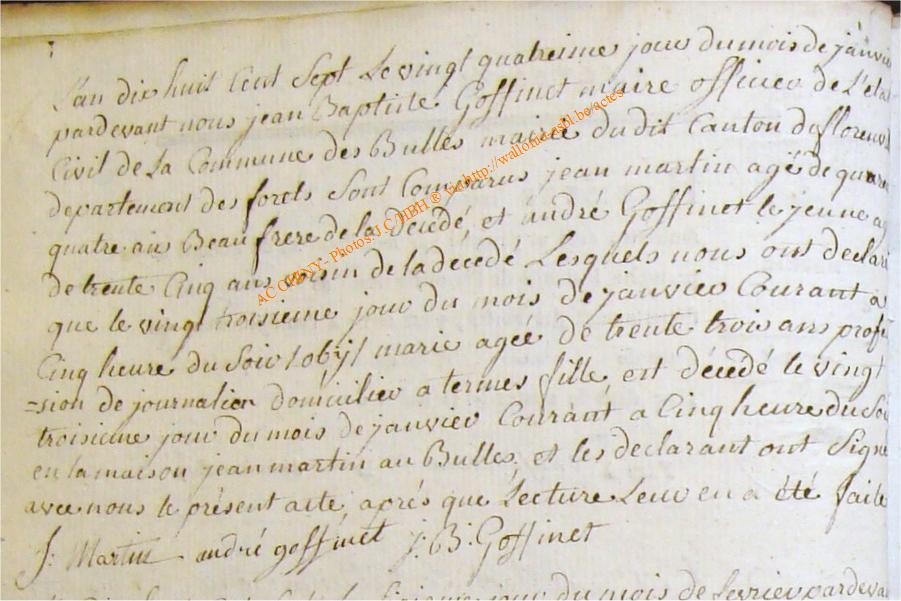 L'an dix huit Cent Sept Le vingt quatreime jour du mois de janvie
pardevant nous jean Baptiste Goffinet maire officier de L'eta
Civil de La Commune des Bulles mairie dudit Canton de florenvi
departement des forets Sont Comparus jean martin agé de quaran
quatre ans Beau frere de la décedé, et andré Goffinet le jeune ag
de trente Cinq ans voisin de la decedé Lesquels nous ont declaré
que le vingt troisieme jour du mois de janvier Courant a
Cinq heure du Soir marie agée de trente trois ans profe
=sion de journalier domicilier a termes fille, est décedé le vingt
troisieme jour du mois de janvier Courant a Cinq heure du Soi
en la maison jean martin au Bulles, et les declarant ont Signé
avec nous le présent acte aprés que Lecture Leur en a été faite
J: Martin andré goffinet j: B: Goffinet
jour du mois de fevrier pardeva
AC CHINY - Photos: J.C/HBH ®